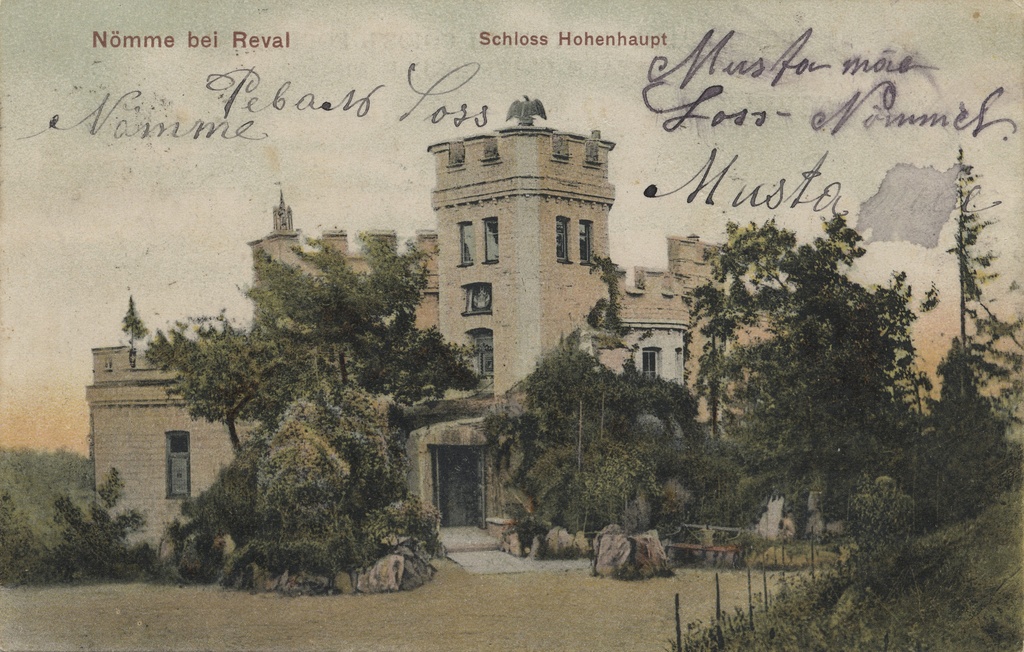 Nömme bei Reval
Schloss Hohenhaupt
Nömme Ревалъ Loss
Musta mäe
Loss - Nömmel
Musta